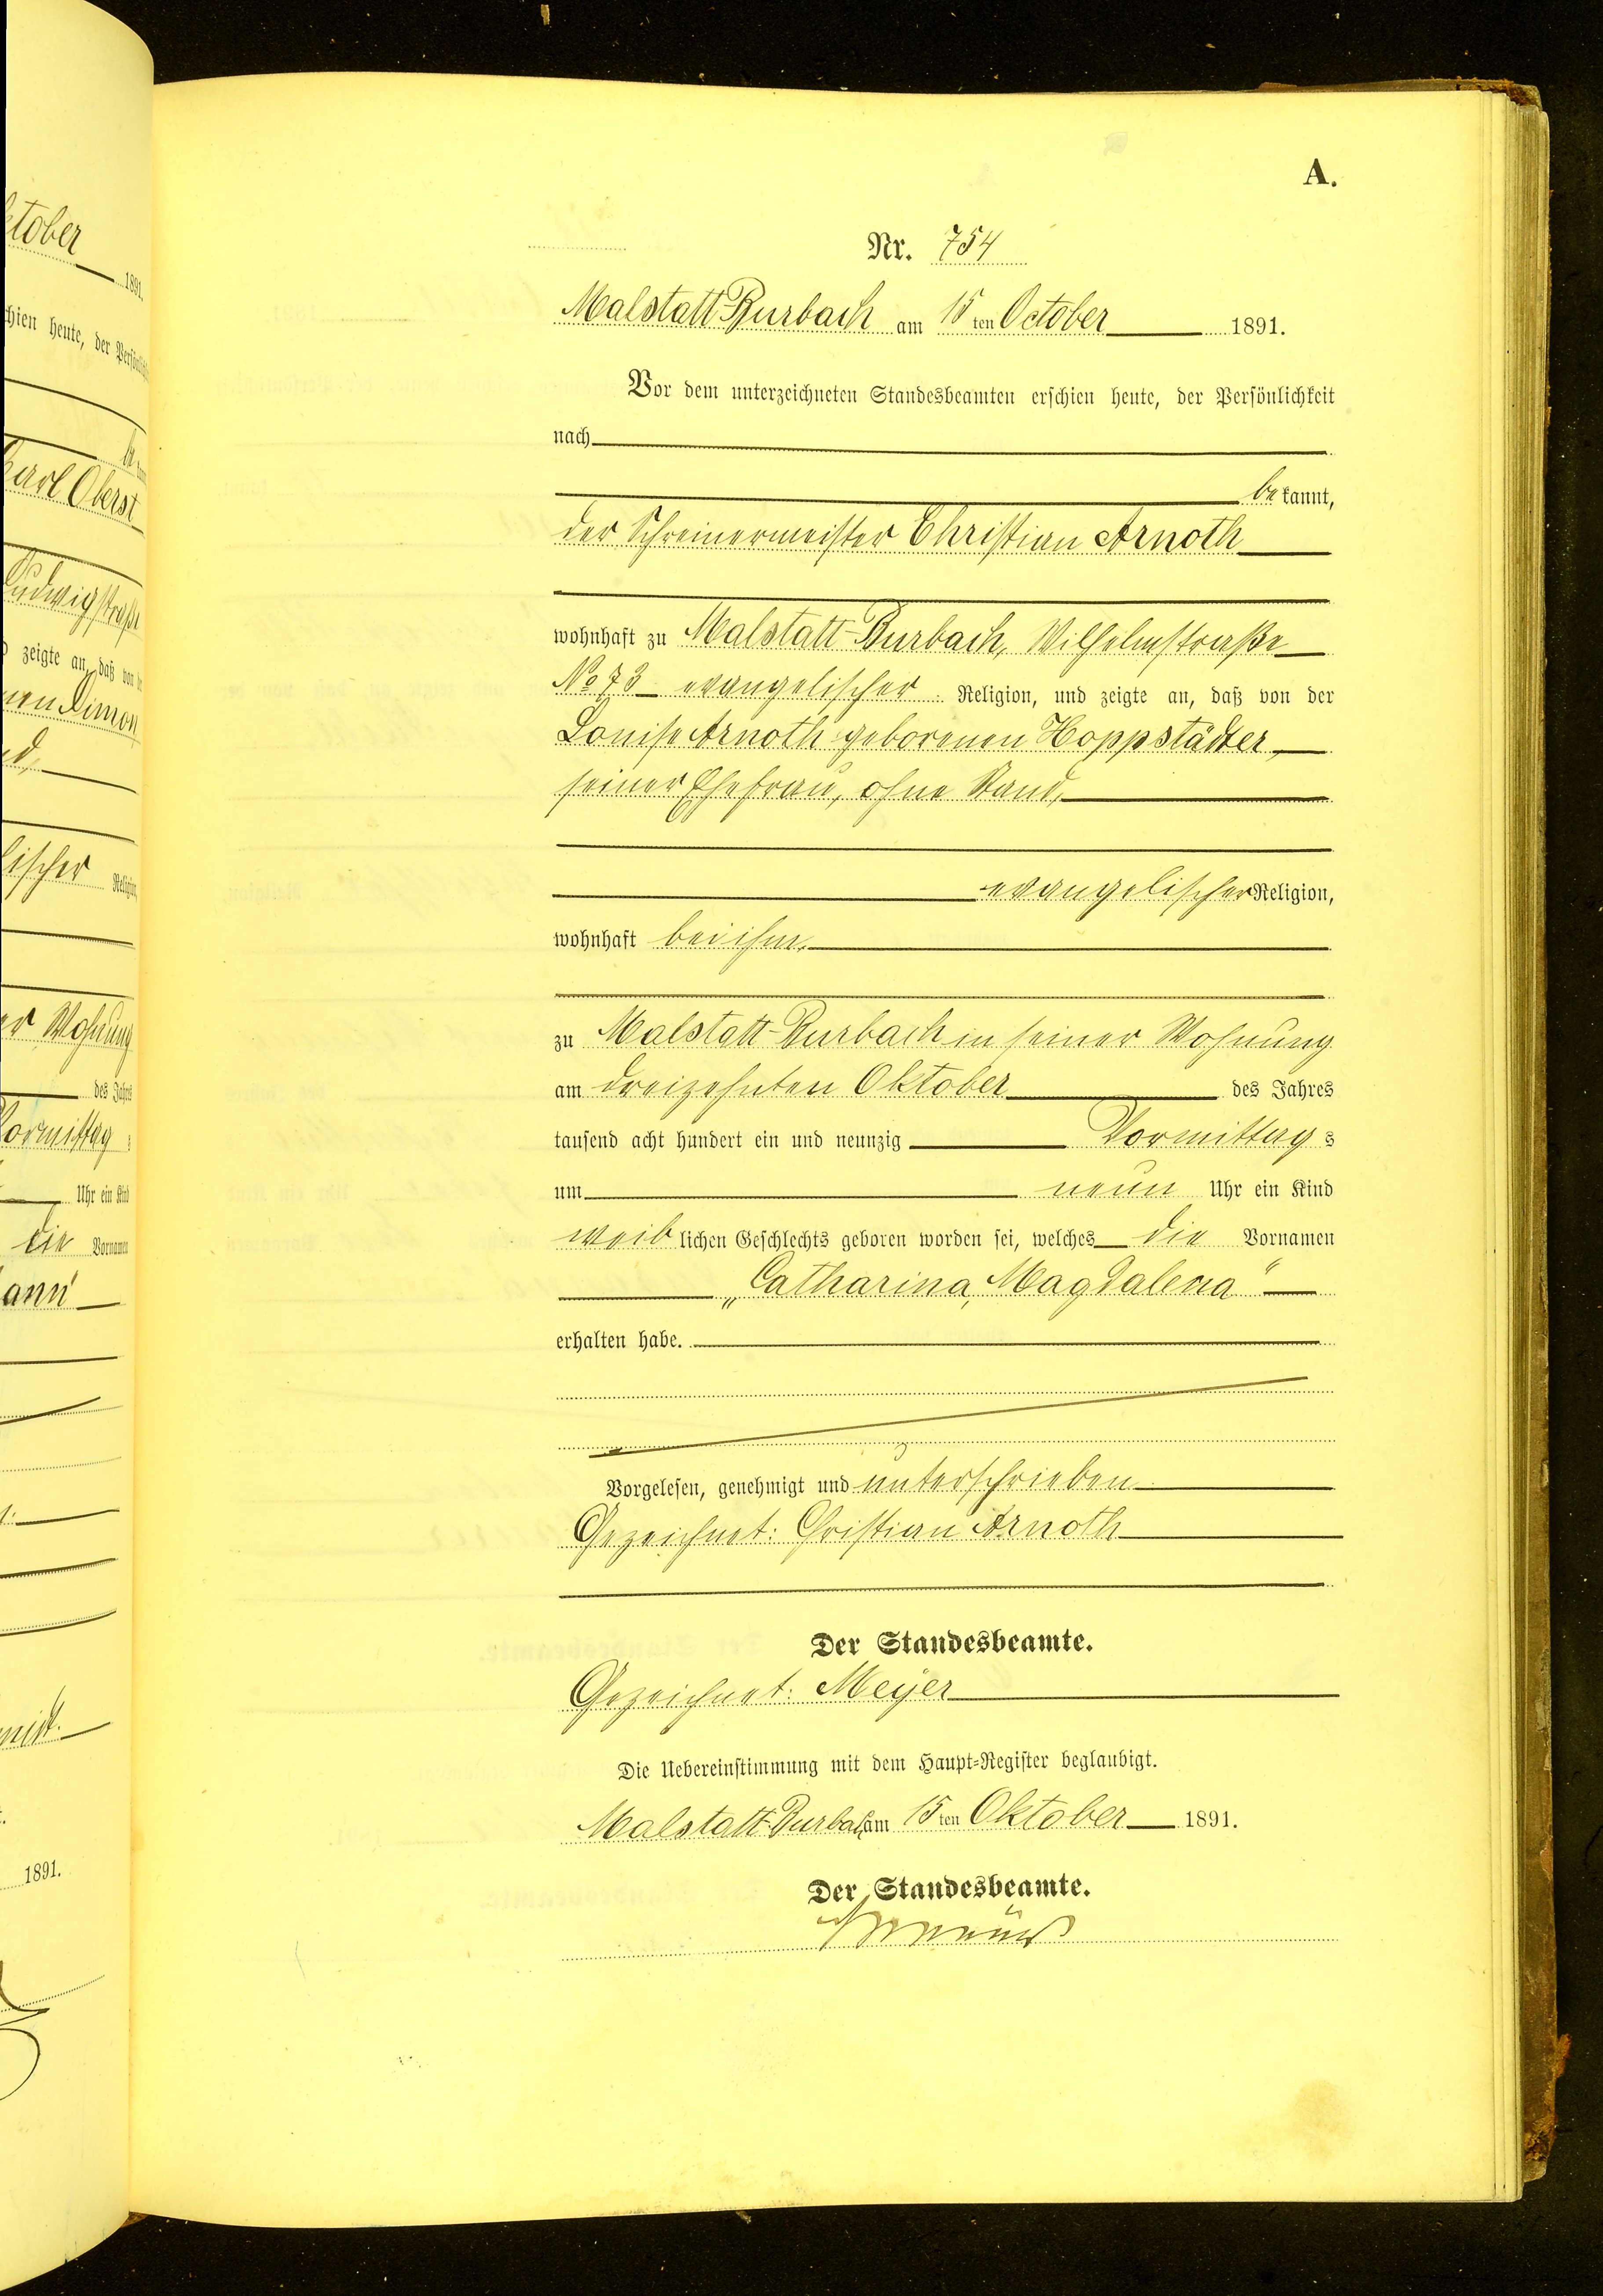 A.
Nr. 754
Malstatt-Burbach am 15ten October 1891.
Vor dem unterzeichneten Standesbeamten erschien heute, der Persönlichkeit
nach
bekannt,
der Schreinermeister Christian Arnoth
wohnhaft zu Malstatt-Burbach, Wilhelmstraße
No 73 evangelischer Religion, und zeigte an, daß von der
Louise Arnoth geborenen Hoppstädter,
seiner Ehefrau, ohne Stand,
evangelischer Religion,
wohnhaft bei ihm,
zu Malstatt-Burbach in seiner Wohnung
am dreizehnten Oktober des Jahres
tausend acht hundert ein und neunzig Vormittags
um neun Uhr ein Kind
weiblichen Geschlechts geboren worden sei, welches die Vornamen
„Catharina, Magdalena"
erhalten habe.
Vorgelesen, genehmigt und unterschrieben
Gezeichnet: Christian Arnoth
Der Standesbeamte.
Gezeichnet: Meyer
Die Uebereinstimmung mit dem Haupt-Register beglaubigt.
Malstatt-Burbach am 15ten Oktober 1891.
Der Standesbeamte.